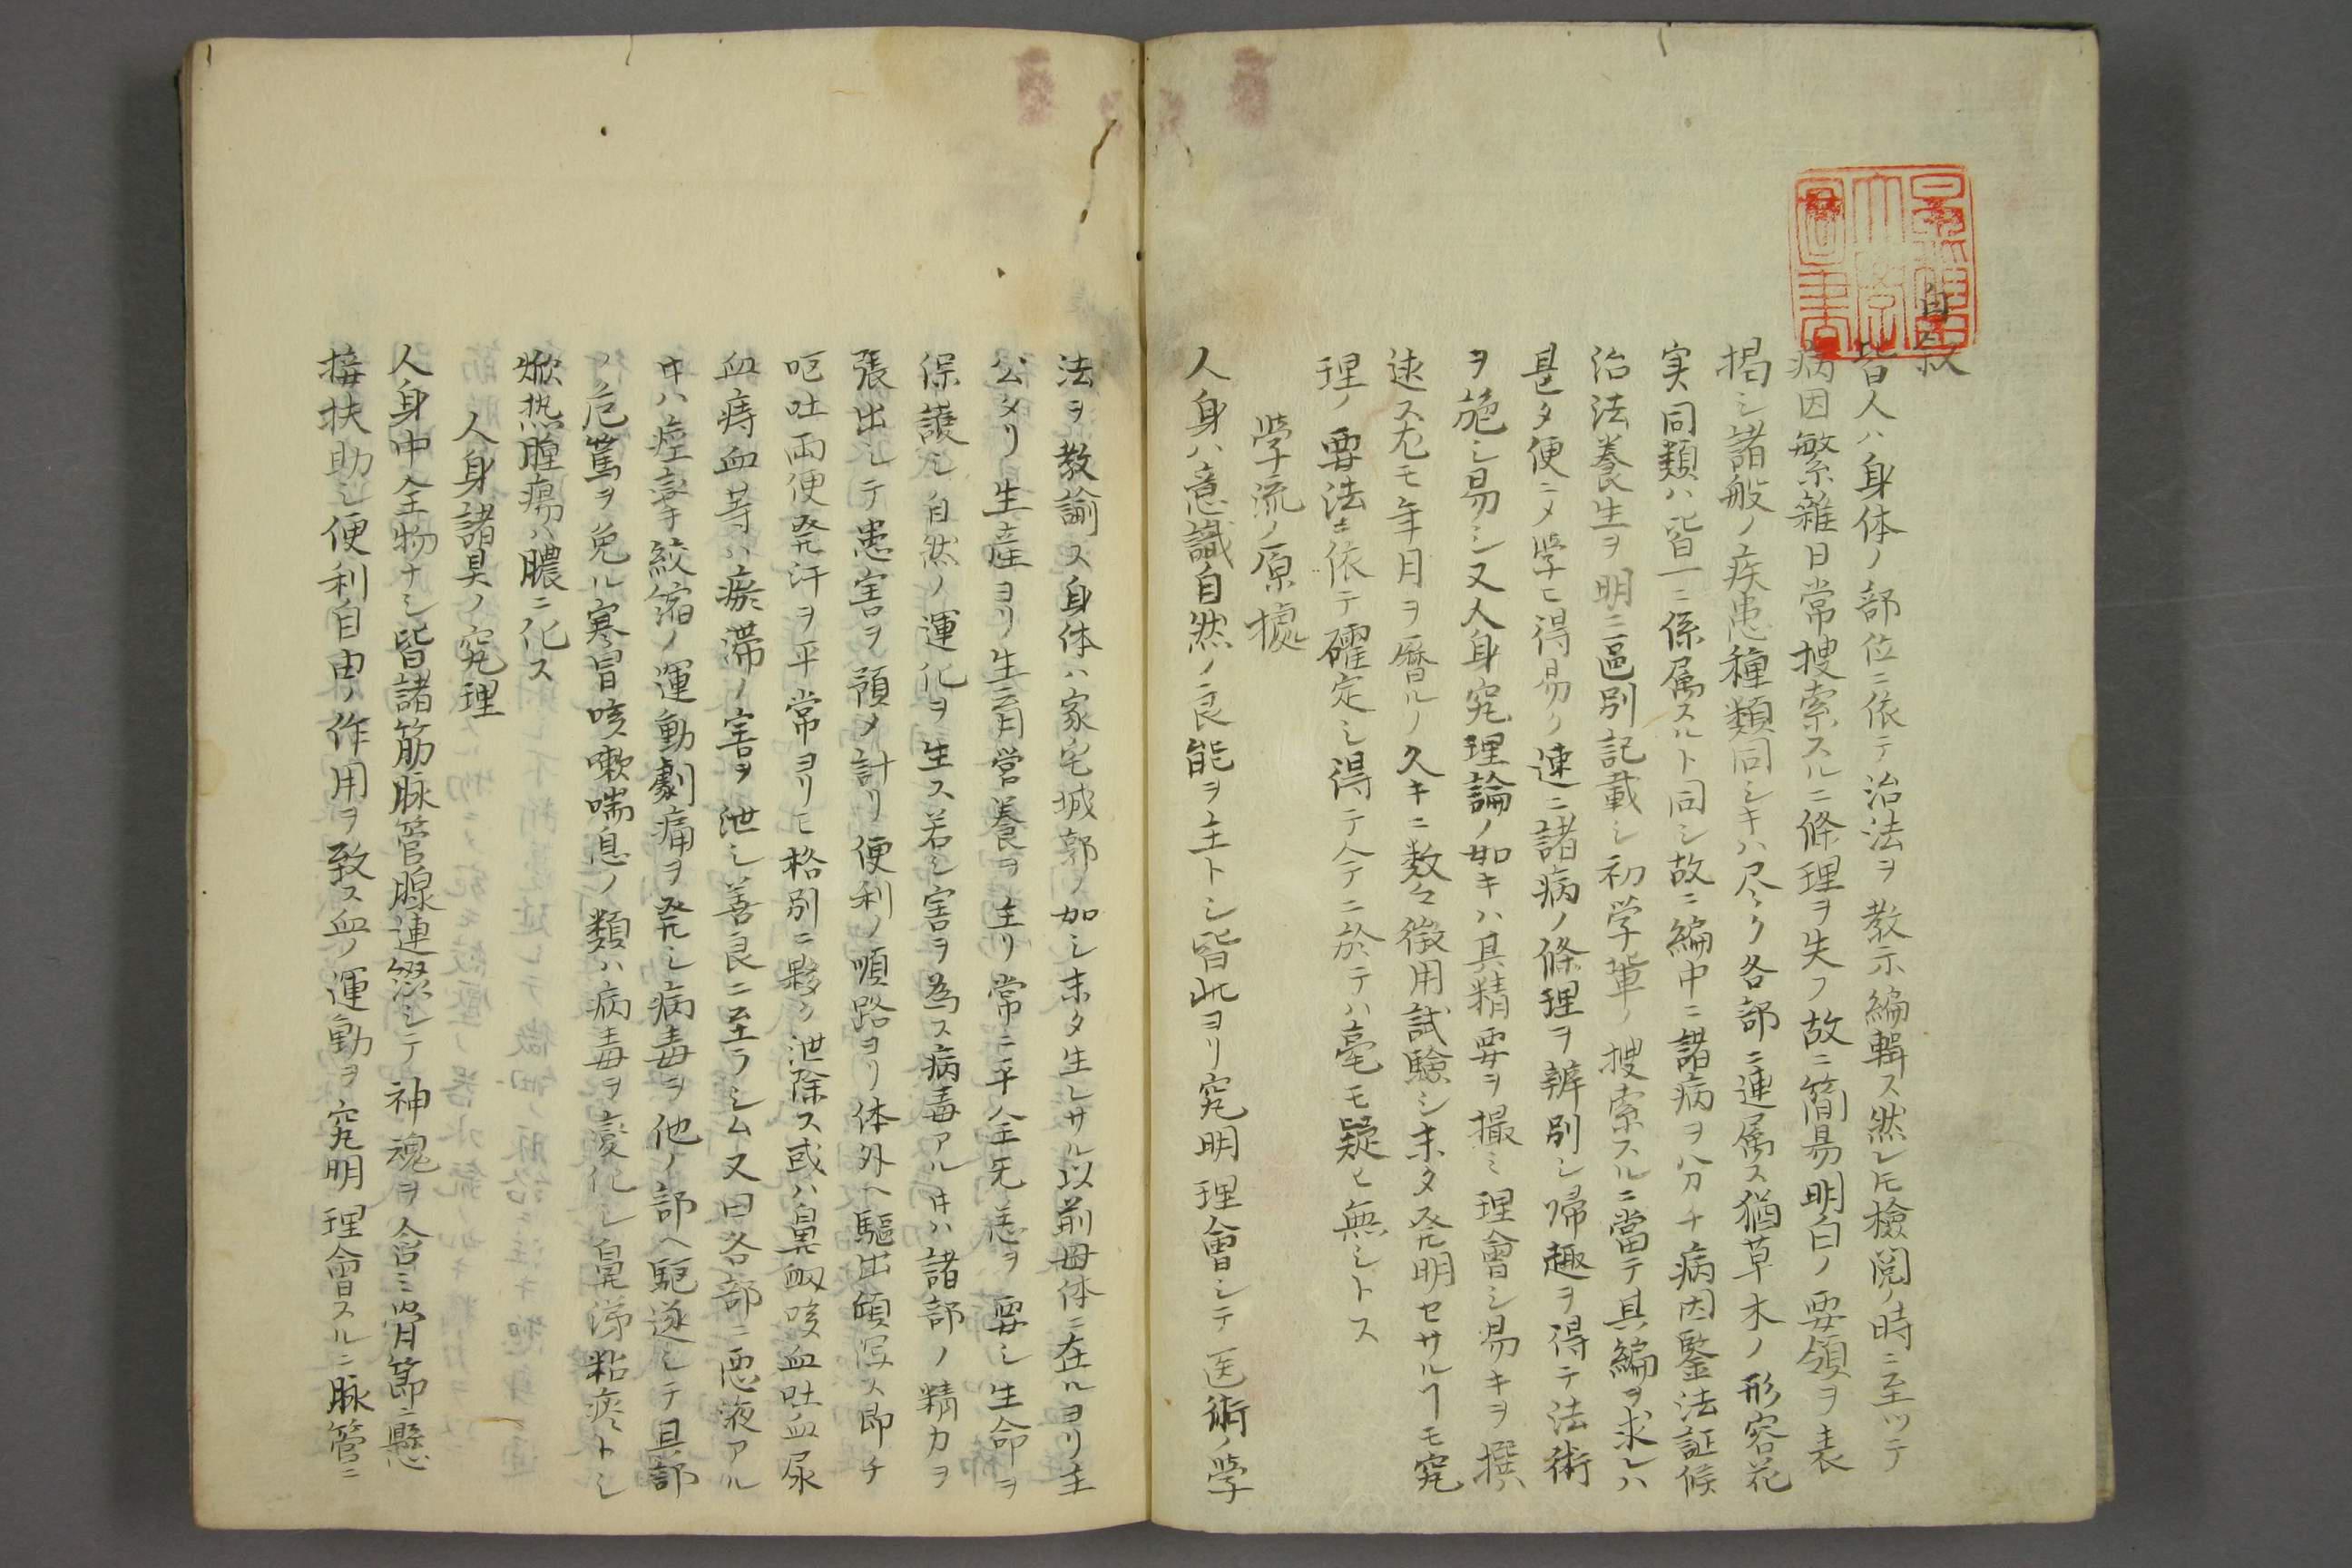 自叙
皆人ハ身体ノ部位ニ依テ治法ヲ教示編輯ス然レ𪜈檢閲ノ時ニ至ツテ
病因繁雑日常捜索スルニ條理ヲ失フ故ニ簡易明白ノ要領ヲ表
掲シ諸般ノ疾患種類同シキハ尽ク各部ニ連属ス猶草木ノ形容花
実同類ハ皆一ニ係属スルト同シ故ニ編中ニ諸病ヲ分チ病因鑒法証候
治法養生ヲ明ニ區別記載シ初学輩ノ捜索スルニ當テ其編ヲ求レハ
甚タ便ニ〆学ヒ得易ク速ニ諸病ノ條理ヲ辨別シ帰趣ヲ得テ法術
ヲ施シ易シ又人身究理論ノ如キハ其精要ヲ撮ミ理會シ易キヲ撰
述ス尤モ年月ヲ歴ルノ久キニ数々徴用試驗シ未タ発明セサルヿモ究
理ノ要法ニ依テ確定シ得テ今テニ於テハ毫モ疑ヒ無シトス
学流ノ原據
人身ハ意識自然ノ良能ヲ主トシ皆此ヨリ究明理會シテ医術ノ学
法ヲ教諭ス身体ハ家宅城郭ノ如シ未タ生レサル以前母体ニ在ルヨリ主
公メリ生産ヨリ生育営養ヲ主リ常ニ平全无恙ヲ要シ生命ヲ
保護シ自然ノ運化ヲ生ス若シ害ヲ為ス病毒アル𪜈ハ諸部ノ精力ヲ
張出シテ患害ヲ預メ計リ便利ノ順路ヨリ体外ヘ驅出傾瀉ス即チ
嘔吐両便発汗ヲ平常ヨリモ格別ニ夥ク泄除ス或ハ鼻衂咳血吐血尿
血痔血等ハ瘀滞ノ害ヲ泄シ善良ニ至ラシム又曰各部ニ悪液アル
𪜈ハ痙攣絞縮ノ運動劇痛ヲ発シ病毒ヲ他ノ部ヘ駆逐シテ其部
ノ危篤ヲ免ル寒冒咳嗽喘息ノ類ハ病毒ヲ変化シ鼻涕粘痰トシ
焮热腫瘍ハ膿ニ化ス
人身諸具ノ究理
人身中全物ナシ皆諸筋脉管腺連綴シテ神魂ヲ含ミ骨節ニ懸
接扶助シ便利自由ノ作用ヲ致ス血ノ運動ヲ究明理會スルニ脉管ニ